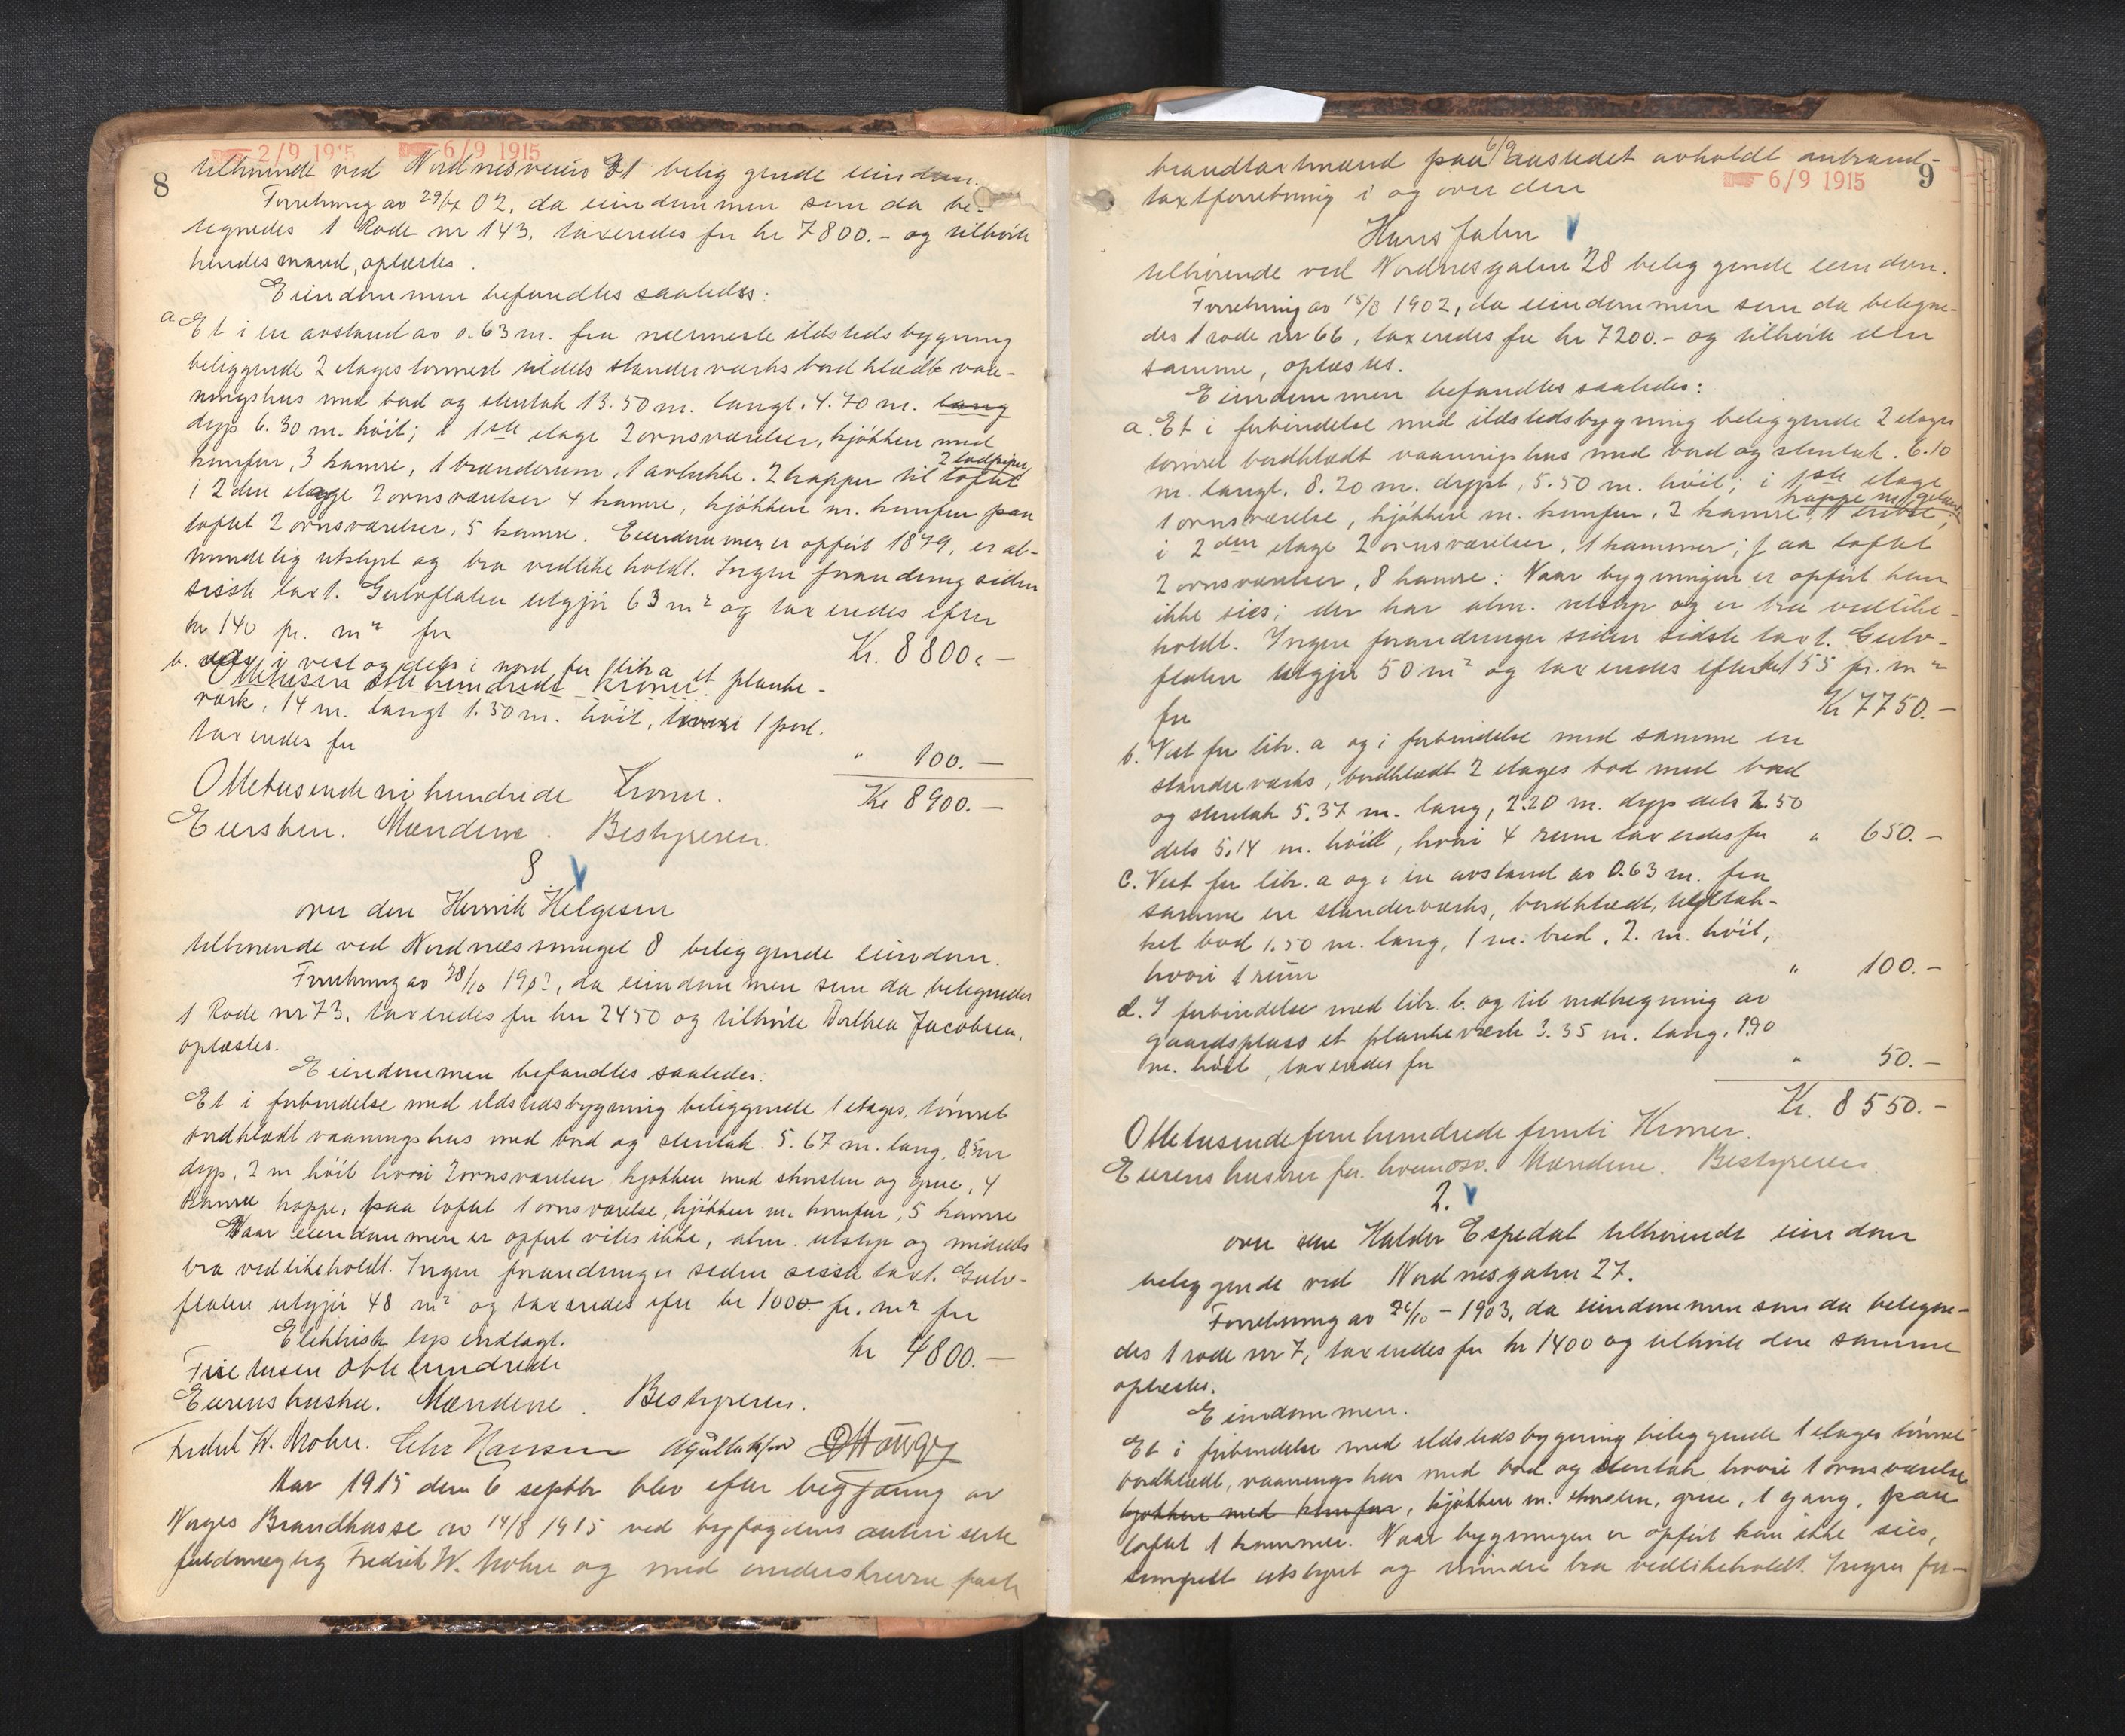 2/9 1915 6/9 1915
8
tilhørende ved Nordnesveien 31 belig gende eiendom.
Forretning av 29/ 02, da eiendommen som da be-
tegnedes 1 Rode nr 143, taxeredes for kr 7800.- og tilhørte
hendes mand, oplæstes.
Eiendommen befandtes saaledes:
a Et i en avstand av 0.63 m. fra nærmeste ildstedsbygning
beliggende 2 etages tømret tildels standerverks bordklædt vaa-
ningshus med bord og stentak 13.50 m. langt. 4.70 m. lang
dyp 6.30 m. høit; i 1ste etage 2 ornsværelser, kjøkken med
komfur, 3 kamre, 1 brænderum, 1 avlukke. 2 trapper til loftet
i 2den etage 2 ornsværelser 4 kamre, kjøkken m. komfur paa
loftet 2 ornsværelser, 5 kamre. Eiendommen er opført 1879, er al-
mindelig utstyrt og bra vedlikeholdt. Ingen forandring siden
sisste taxt. Gulvflaten utgjør 63 m² og taxeredes efter
kr 140 pr. m² for
Kr. 8800.-
b. dels i vest og dels i nord for litr a et planke-
Ottetusen otte hundrede kroner.
verk, 14 m. langt 1.30 m. høit, hvori 1 port.
taxeredes for
" 100.-
Ottetusende ni hundrede Kroner.
Kr 8900.-
Eiersken. Mændene. Bestyreren.
8
over den Henrik Helgesen
tilhørende ved Nordnessmuget 8 beliggende eiendom.
Forretning av 28/10 1903, da eiendommen som da betegnedes
1 Rode nr 73. taxeredes for kr 2450 og tilhørte Dorthea Jacobsen,
oplæstes.
Eiendommen befandtes saaledes:
Et i forbindelse med ildstedsbygning beliggende 1 etages, tømret
bordklædt vaaningshus med bord og stentak. 5.67 m. lang, 8.5 m
dyp, 2 m høit hvori 2 ornsværelser kjøkken med skorsten og grue, 4
kamre trappe, paa loftet 1 ornsværelse, kjøkken m. komfur, 5 kamre
Naar eiendommen er opført vites ikke, alm. utstyr og middels
bra vedlikeholdt. Ingen forandringer siden sisste taxt. Gulv-
flaten utgjør 48 m² og taxeredes efter kr 100 pr. m² for
Elektrisk lys indlagt.
kr 4800.-
Fire tusen otte hundrede
Eierens hustru. Mændene. Bestyreren.
Fredrik W. Mohn. Chr Hansen
Aar 1915 den 6 septbr blev efter begjæring av
Norges Brandkasse av 14/8 1915 ved byfogdens autoriserte
fuldmægtig Fredrik W. Mohn og med underskrevne faste
brandtaxtmænd paa 6/9 aastedet avholdt anbrand-
6/9 1915
9
taxtforretning i og over den
Hans Jahn
tilhørende ved Nordnesgaten 28 belig gende eiendom.
Forretning av 15/8 1902, da eiendommen som da betegne-
des 1 rode nr 66, taxeredes for kr 7200.- og tilhørte den
samme, oplæstes.
Eiendommen befandtes saaledes:
a. Et i forbindelse med ildstedsbygning beliggende 2 etages
tømret bordklædt vaaningshus med bord og stentak. 6.10
m. langt. 8.20 m. dypt, 5.50 m. høit; i 1ste etage
1 ornsværelse, kjøkken m. komfur, 2 kamre,
i 2den etage 2 ornsværelser, 1 kammer; paa loftet
2 ornsværelser, 8 kamre: Naar bygningen er opført kan
ikke sies; der har alm. utstyr og er bra vedlike-
holdt. Ingen forandringer siden sidste taxt. Gulv-
flaten utgjør 50 m² og taxeredes efter kr 155 pr. m²
for
Kr 7750.-
b. Vest for litr. a og i forbindelse med samme en
standerverks, bordklædt 2 etages bod med bord
og stentak 5.37 m. lang, 2.20 m. dyp dels 2.50
dels 5.14 m. høit, hvori 4 rum taxeredes for " 650.-
C. Vest for litr. a og i en avstand av 0.63 m. fra
samme en standerverks, bordklædt, teglstæk-
ket bod 1.50 m. lang, 1 m. bred, 2. m. høit,
hvori 1 rum " 100.-
d. I forbindelse med litr. b. og til indhegning av
gaardsplass et plankeverk 3.35 m. lang. 1.90
m. høit, taxeredes for " 50.-
Kr. 8550.-
Ottetusende fem hundrede femti Kroner.
Eierens hustru for. Mændene. Bestyreren.
2.
over den Halder Espedal tilhørende eiendom
belig gende ved Nordnesgaten 27.
Forretning av 26/10 - 1903, da eiendommen som da betegne-
des 1 rode nr 7, taxeredes for kr 1400 og tilhørte den samme
oplæstes.
Eiendommen.
Et i forbindelse med ildstedsbygning beliggende 1 etages tømret
bordklædt, vaanings hus med bord og stentak hvori 1 ornsværelse
kjøkken med komfur, kjøkken m. skorsten, grue, 1 gang, paa
loftet 1 kammer. Naar bygningen er opført kan ikke sies,
simpelt utstyret og mindre bra vedlikeholdt. Ingen for-